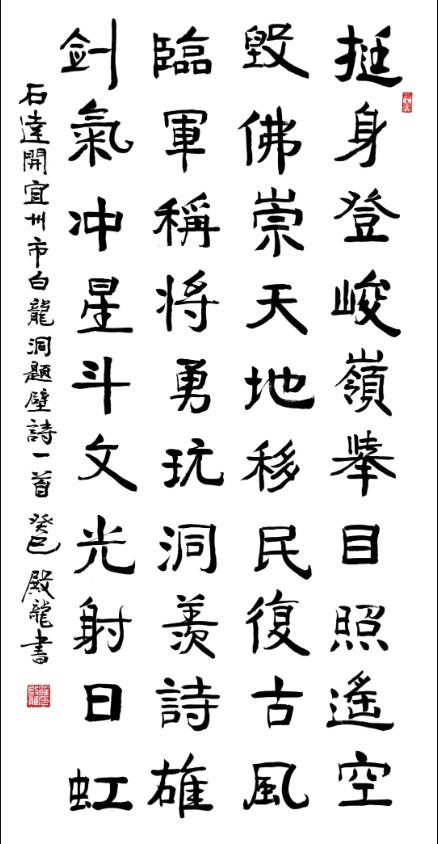 挺身登峻嶺舉目照遙空
毀佛崇天地移民復古風
臨軍稱将勇玩洞羨詩雄
剑氣冲星斗文光射日虹
石達開宜州市白龍洞題壁詩一首 癸巳 殿龍書